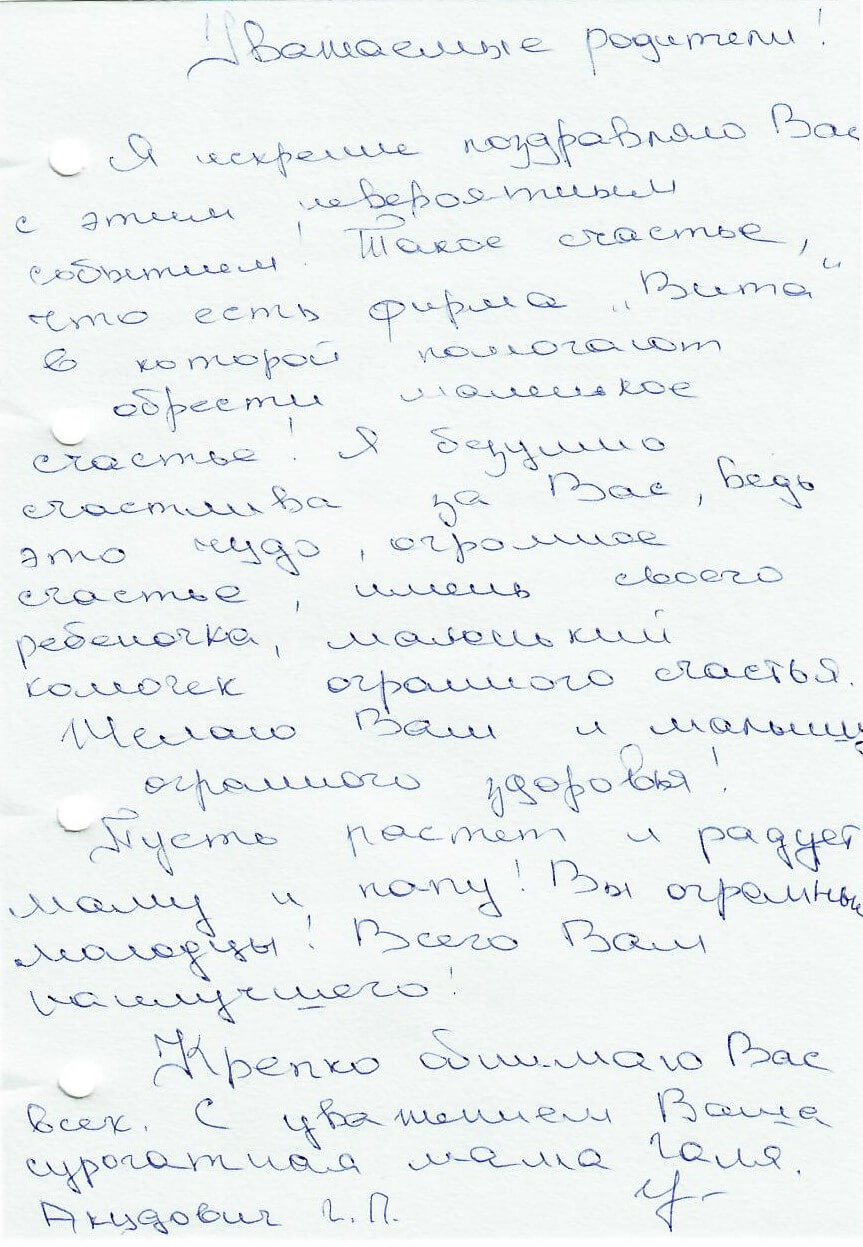 Уважаемые родители!
Я искренне поздравляю Вас
с этим невероятным
событием! Такое счастье,
что есть фирма „Вита"
в которой помогают
обрести маленькое
счастье! Я безумно
счастлива за Вас, ведь
это чудо, огромное
счастье, иметь своего
ребеночка, маленький
комочек огромного счастья.
Желаю Вам и малышу
огромного здоровья!
Пусть растет и радует
маму и папу! Вы огромные
молодцы! Всего Вам
наилучшего!
Крепко обнимаю Вас
всех. С уважением Ваша
сурогатная мама Галя.
Акудович Г.П.